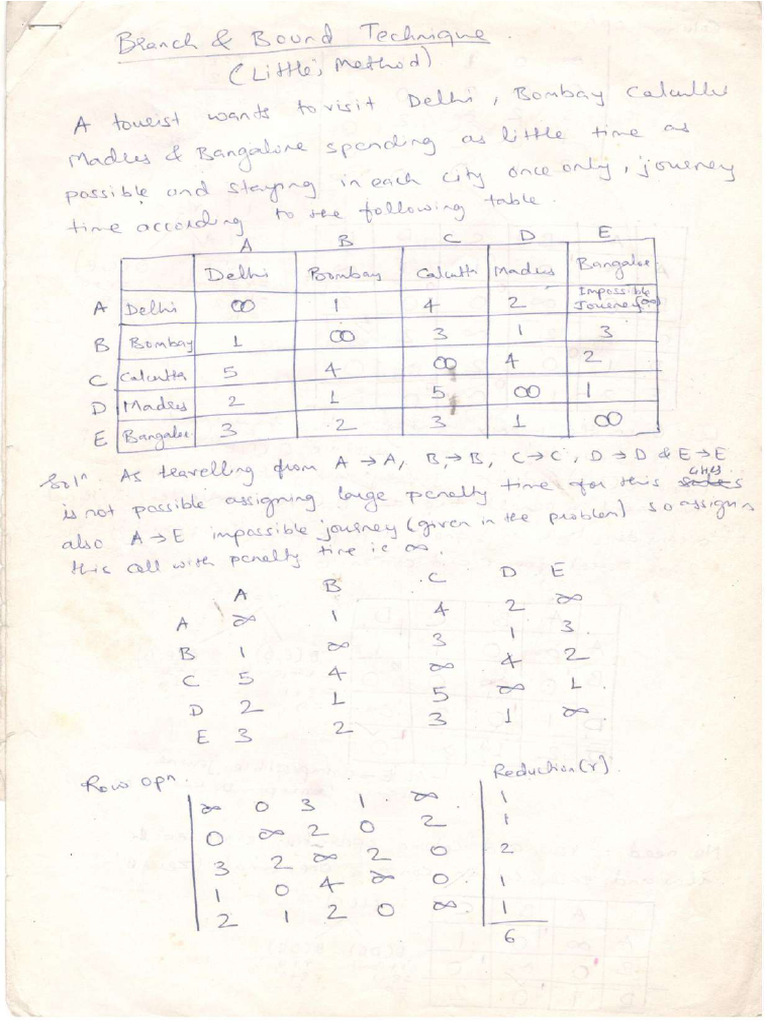 Branch & Bound Technique.
(Little's Method)
A tourist wants to visit Delhi, Bombay Calcutta
Madras & Bangalore spending as little time as
possible and staying in each city once only, journey
time according to the following table.
A B C D E
Delhi Bombay Calcutta Madras Bangalore
A Delhi ∞ 1 4 2 Impossible Journey (∞)
B Bombay 1 ∞ 3 1 3
C Calcutta 5 4 ∞ 4 2
D Madras 2 1 5 ∞ 1
E Bangalore 3 2 3 1 ∞
Solⁿ. As travelling from A → A, B → B, C → C, D → D & E → E
is not possible assigning large penalty time for this
also A → E impossible journey (given in the problem) so assign
this cell with penalty time ie ∞.
A B C D E
A ∞ 1 4 2 ∞
B 1 ∞ 3 1 3.
C 5 4 ∞ 4 2
D 2 1 5 ∞ 1
E 3 2 3 1 ∞.
Row opn. Reduction (r).
∞ 0 3 1 ∞ 1
0 ∞ 2 0 2 1
3 2 ∞ 2 0 2
1 0 4 ∞ 0 1
2 1 2 0 ∞ 1
6